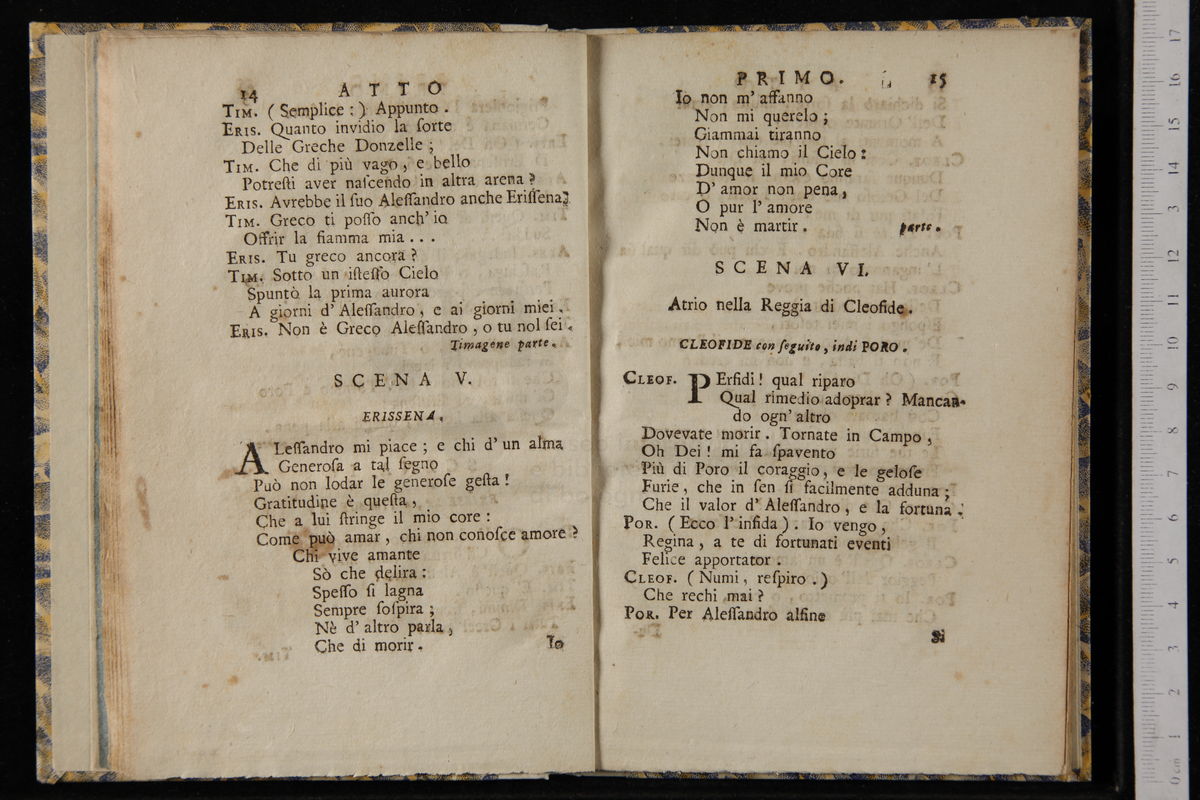 14 ATTO
TIM. ( Semplice : ) Appunto .
ERIS. Quanto invidio la ſorte
Delle Greche Donzelle ;
TIM. Che di più vago , e bello
Potreſti aver naſcendo in altra arena ?
ERIS. Avrebbe il ſuo Aleſſandro anche Eriſſena?
TIM. Greco ti poſſo anch' io
Offrir la fiamma mia . . .
ERIS. Tu greco ancora ?
TIM. Sotto un iſteſſo Cielo
Spuntò la prima aurora
A giorni d' Aleſſandro , e ai giorni miei .
ERIS. Non è Greco Aleſſandro , o tu nol ſei .
Timagene parte .
SCENA V.
ERISSENA .
ALeſſandro mi piace ; e chi d' un alma
Generoſa a tal ſegno
Può non lodar le generoſe geſta !
Gratitudine è queſta ,
Che a lui ſtringe il mio core :
Come può amar , chi non conoſce amore ?
Chi vive amante
Sò che delira :
Speſſo ſi lagna
Sempre ſoſpira ;
Nè d' altro parla ,
Che di morir .
Io
PRIMO. 15
Io non m' affanno
Non mi querelo ;
Giammai tiranno
Non chiamo il Cielo :
Dunque il mio Core
D' amor non pena ,
O pur l' amore
Non è martir . parte .
SCENA VI.
Atrio nella Reggia di Cleofide .
CLEOFIDE con ſeguito , indi PORO .
CLEOF. PErfidi ! qual riparo
Qual rimedio adoprar ? Mancan-
do ogn' altro
Dovevate morir . Tornate in Campo ,
Oh Dei ! mi fa ſpavento
Più di Poro il coraggio , e le geloſe
Furie , che in ſen ſi facilmente adduna ;
Che il valor d' Aleſſandro , e la fortuna .
POR. ( Ecco l' infida ) . Io vengo ,
Regina , a te di fortunati eventi
Felice apportator .
CLEOF. ( Numi , reſpiro . )
Che rechi mai ?
POR. Per Aleſſandro alfine
Si
17
16
15
14
13
12
11
10
9
8
7
6
5
4
3
2
1
0 cm